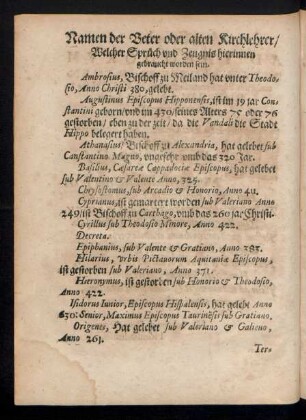 Namen der Veter oder alten Kirchlehrer/
Welcher Sprüch vnd Zeugnis hierinnen
gebraucht worden sein.
Ambrosius, Bischoff zu Meiland hat vnter Theodo-
sio, Anno Christi 380, gelebt.
Augustinus Episcopus Hipponensis, ist im 19 jar Con-
stantini geborn/ vnd im 430/ seines Alters 75 oder 76
gestorben/ eben zu der zeit/ da die Vandali die Stadt
Hippo belegert haben.
Athanasius/ Bischoff zu Alexandria, hat gelebet sub
Constantino Magno, vngefehr vmb das 320 Jar.
Basilius, Cæsareæ Cappadociæ Episcopus, hat gelebet
sub Valentino & Valente Anno, 325.
Chrysostomus, sub Arcadio & Honorio, Anno 411.
Cyprianus, ist gemartert worden sub Valeriano Anno
249/ ist Bischoff zu Carthago, vmb das 260 jar Christi.
Cyrillus sub Theodosio Minore, Anno 422.
Decreta.
Epiphanius, sub Valente & Gratiano, Anno 383.
Hilarius, vrbis Pictauorum Aquitaniæ Episcopus,
ist gestorben sub Valeriano, Anno 371.
Hieronymus, ist gestorben sub Honorio & Theodosio,
Anno 422.
Isidorus Iunior, Episcopus Hispalensis, hat gelebt Anno
630: Senior, Maximus Episcopus Taurinẽsis sub Gratiano.
Origenes, Hat gelebet sub Valeriano & Galieno,
Anno 261.
Ter-